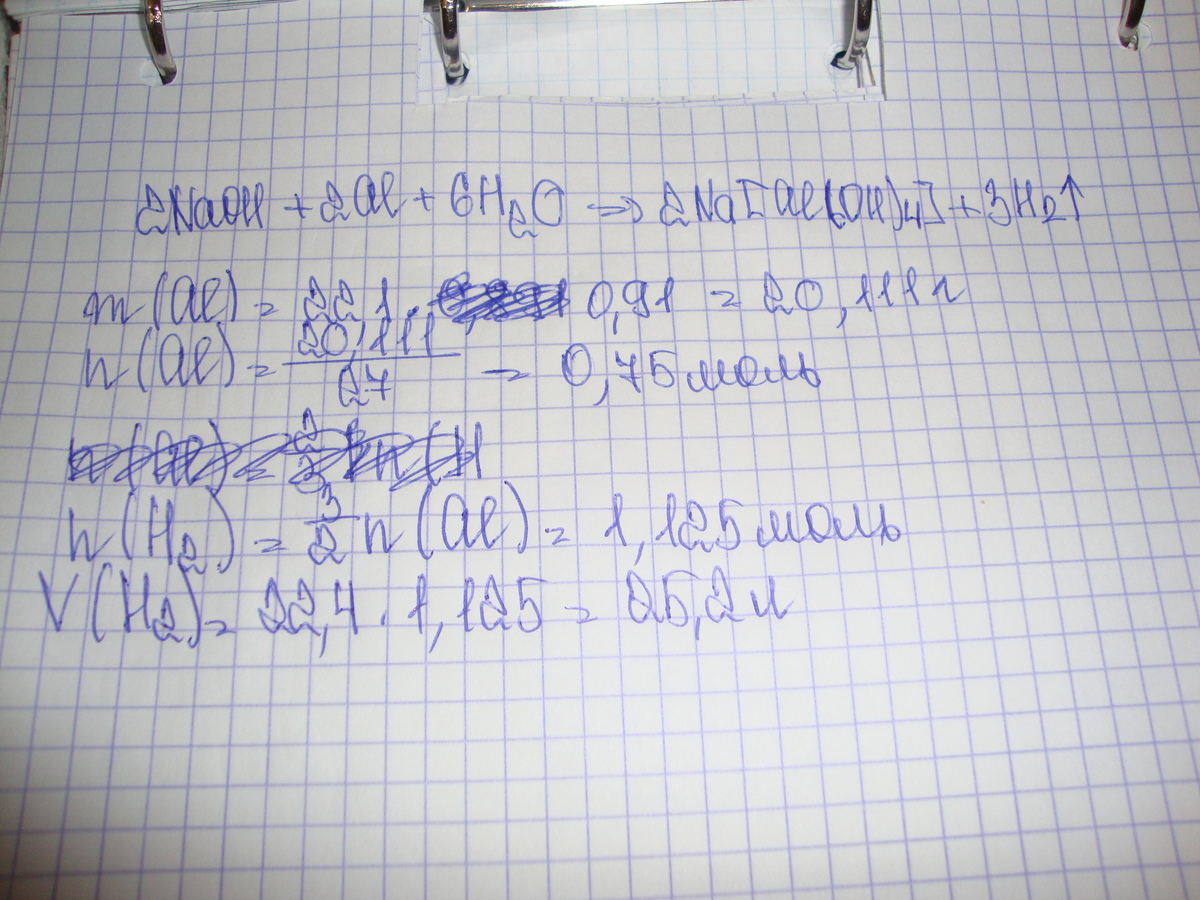 2NaOH + 2Al + 6H₂O → 2Na[Al(OH)₄] + 3H₂↑
m(Al) = 22,1 · 0,91 = 20,111г
n(Al) = 20,111/27 = 0,75моль
n(H₂) = 3/2 n(Al) = 1,125моль
V(H₂) = 22,4 · 1,125 = 25,2л